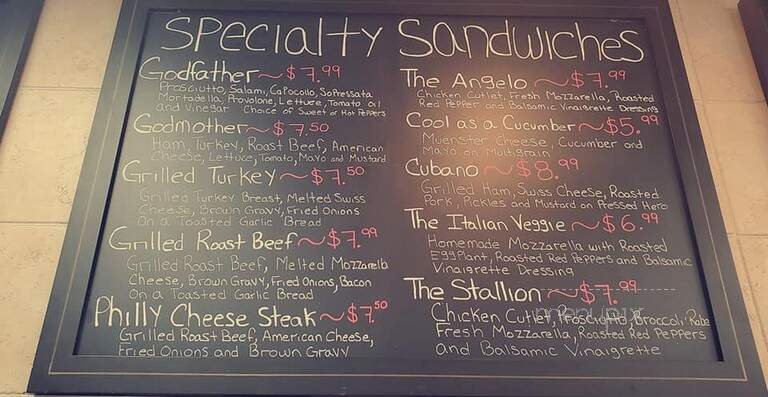 Specialty Sandwiches
Godfather ~ $7.99
Prosciutto, Salami, Capocollo, Sopressata
Mortadella, Provolone, Lettuce, Tomato oil
and Vinegar Choice of Sweet or Hot Peppers
Godmother ~ $7.50
Ham, Turkey, Roast Beef, American
Cheese, Lettuce, Tomato, Mayo and Mustard
Grilled Turkey ~ $7.50
Grilled Turkey Breast, Melted Swiss
Cheese, Brown Gravy, Fried Onions
On a Toasted Garlic Bread
Grilled Roast Beef ~ $7.99
Grilled Roast Beef, Melted Mozzarella
Cheese, Brown Gravy, Fried Onions, Bacon
On a Toasted Garlic Bread
Philly Cheese Steak ~ $7.50
Grilled Roast Beef, American Cheese,
Fried Onions and Brown Gravy
The Angelo ~ $7.99
Chicken Cutlet, Fresh Mozzarella, Roasted
Red Pepper and Balsamic Vinaigrette Dressing
Cool as a Cucumber ~ $5.99
Muenster Cheese, Cucumber and
Mayo on Multigrain
Cubano ~ $8.99
Grilled Ham, Swiss Cheese, Roasted
Pork, Pickles and Mustard on Pressed Hero
The Italian Veggie ~ $6.99
Homemade Mozzarella with Roasted
Eggplant, Roasted Red Peppers and Balsamic
Vinaigrette Dressing
The Stallion ~ $7.99
Chicken Cutlet, Prosciutto, Broccoli Rabe
Fresh Mozzarella, Roasted Red Peppers
and Balsamic Vinaigrette